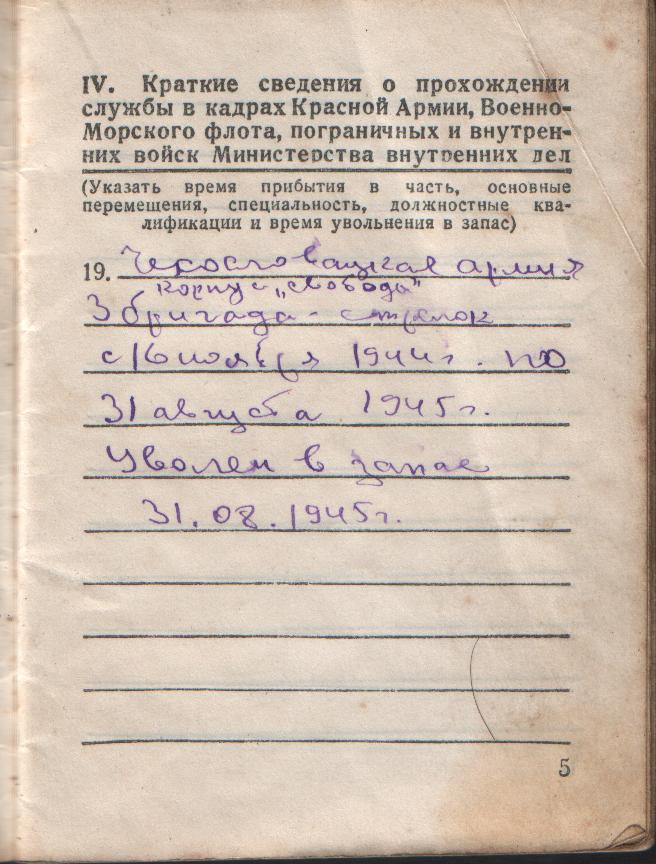 IV. Краткие сведения о прохождении
службы в кадрах Красной Армии, Военно-
Морского флота, пограничных и внутрен-
них войск Министерства внутренних дел
(Указать время прибытия в часть, основные
перемещения, специальность, должностные ква-
лификации и время увольнения в запас)
19. Чехословацкая армия
корпус „свобода"
3 бригада - стрелок
с 16 ноября 1944 г. по
31 августа 1945 г.
Уволен в запас
31.08.1945 г.
5